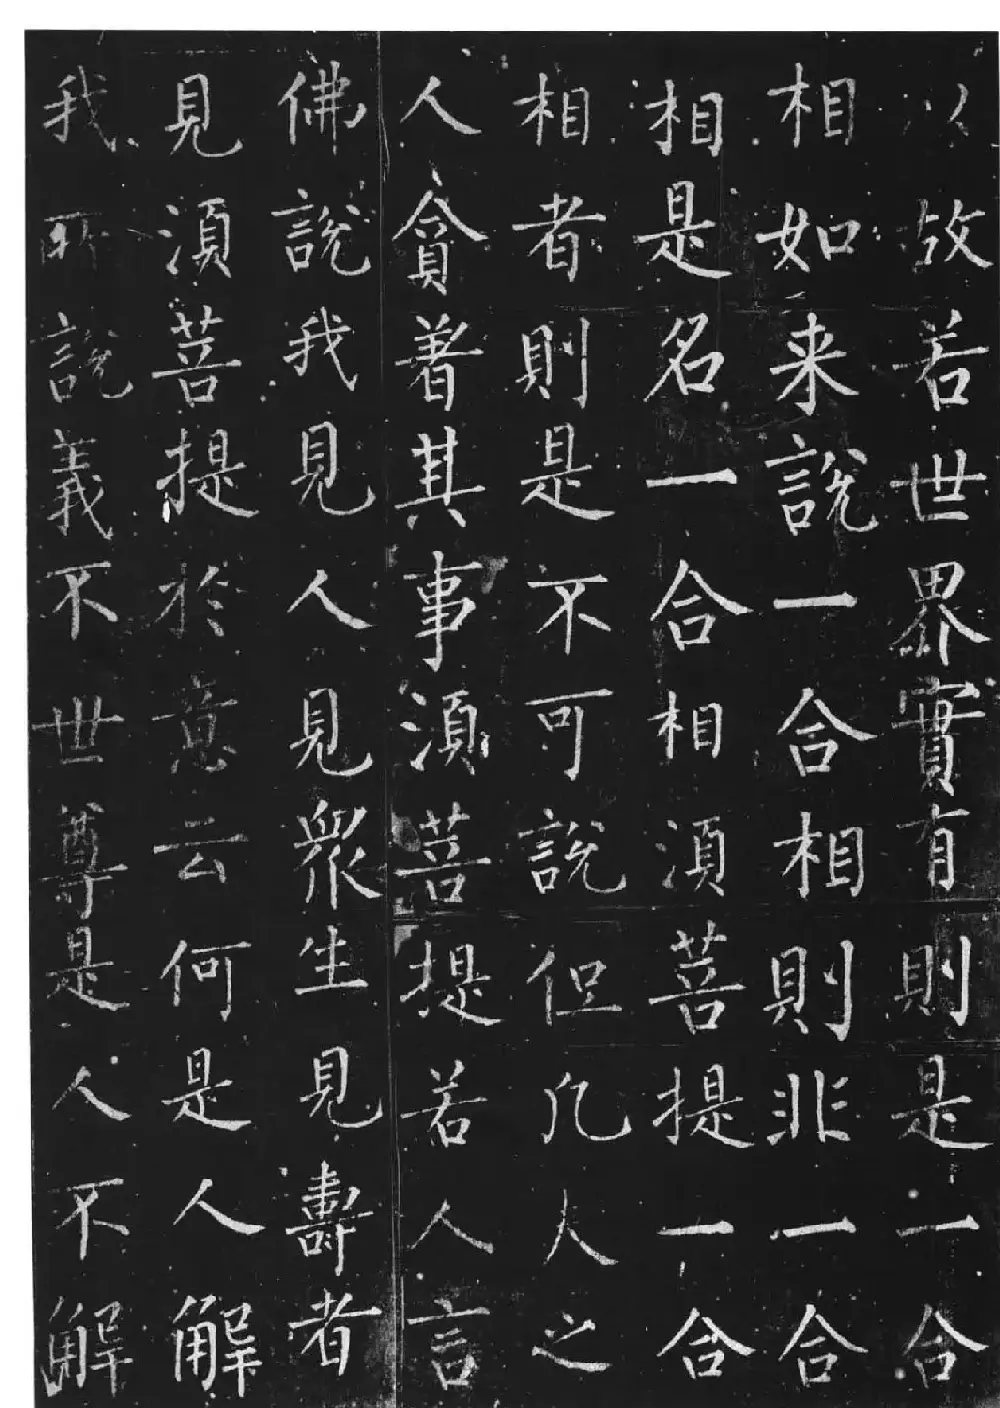 以故若世界實有則是一合
相如来說一合相則非一合
相是名一合相須菩提一合
相者則是不可說但凡人之
人貪著其事須菩提若人言
佛說我見人見衆生見壽者
見須菩提於意云何是人解
我所說義不世尊是人不解